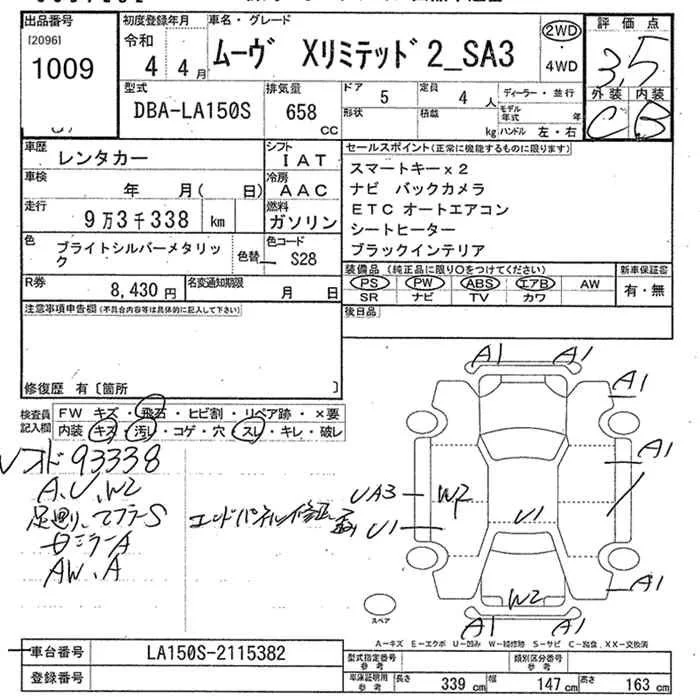 出品番号
[2096]
1009
初度登録年月
令和
4 4月
車名・グレード
ムーヴ Xリミテッド2_SA3
2WD
・
4WD
評価点
3.5
外装 内装
C B
型式
DBA-LA150S
排気量
658
CC
ドア
5
定員
4 人
ディーラー・並行
形状
積載
kg
モデル年式 年
ハンドル 左・右
車歴
レンタカー
シフト
IAT
車検
年 月( 日)
冷房
AAC
走行
9万3千338 km
燃料
ガソリン
色
ブライトシルバーメタリック
色替
色コード
S28
R券
8,430円
名変通知期限
月 日
セールスポイント(正常に機能するものに限ります)
スマートキーx2
ナビ バックカメラ
ETC オートエアコン
シートヒーター
ブラックインテリア
装備品(純正品に限り○をつけてください)
PS PW ABS エアB AW
SR ナビ TV カワ
新車保証書
有・無
後日品
注意事項申告欄(不具合内容等は具体的に記入して下さい)
修復歴 有〔箇所 〕
検査員記入欄
FW キズ・飛石・ヒビ割・リペア跡・×要
内装 キズ・汚レ・コゲ・穴・スレ・キレ・破レ
93338
A、U、W2
足廻り、マフラーS
ミラーA
AW、A
エンドパネル修正
A1 A1
A1
A1
UA3
W2
U1
U1
A1
W2
A1 A1
スペア
A-キズ E-エクボ U-凹み W-補修跡 S-サビ C-腐食 XX-交換済
車台番号
LA150S-2115382
登録番号
型式指定番号
参考
類別区分番号
参考
車庫証明用
参考
長さ 339 cm
幅 147 cm
高さ 163 cm